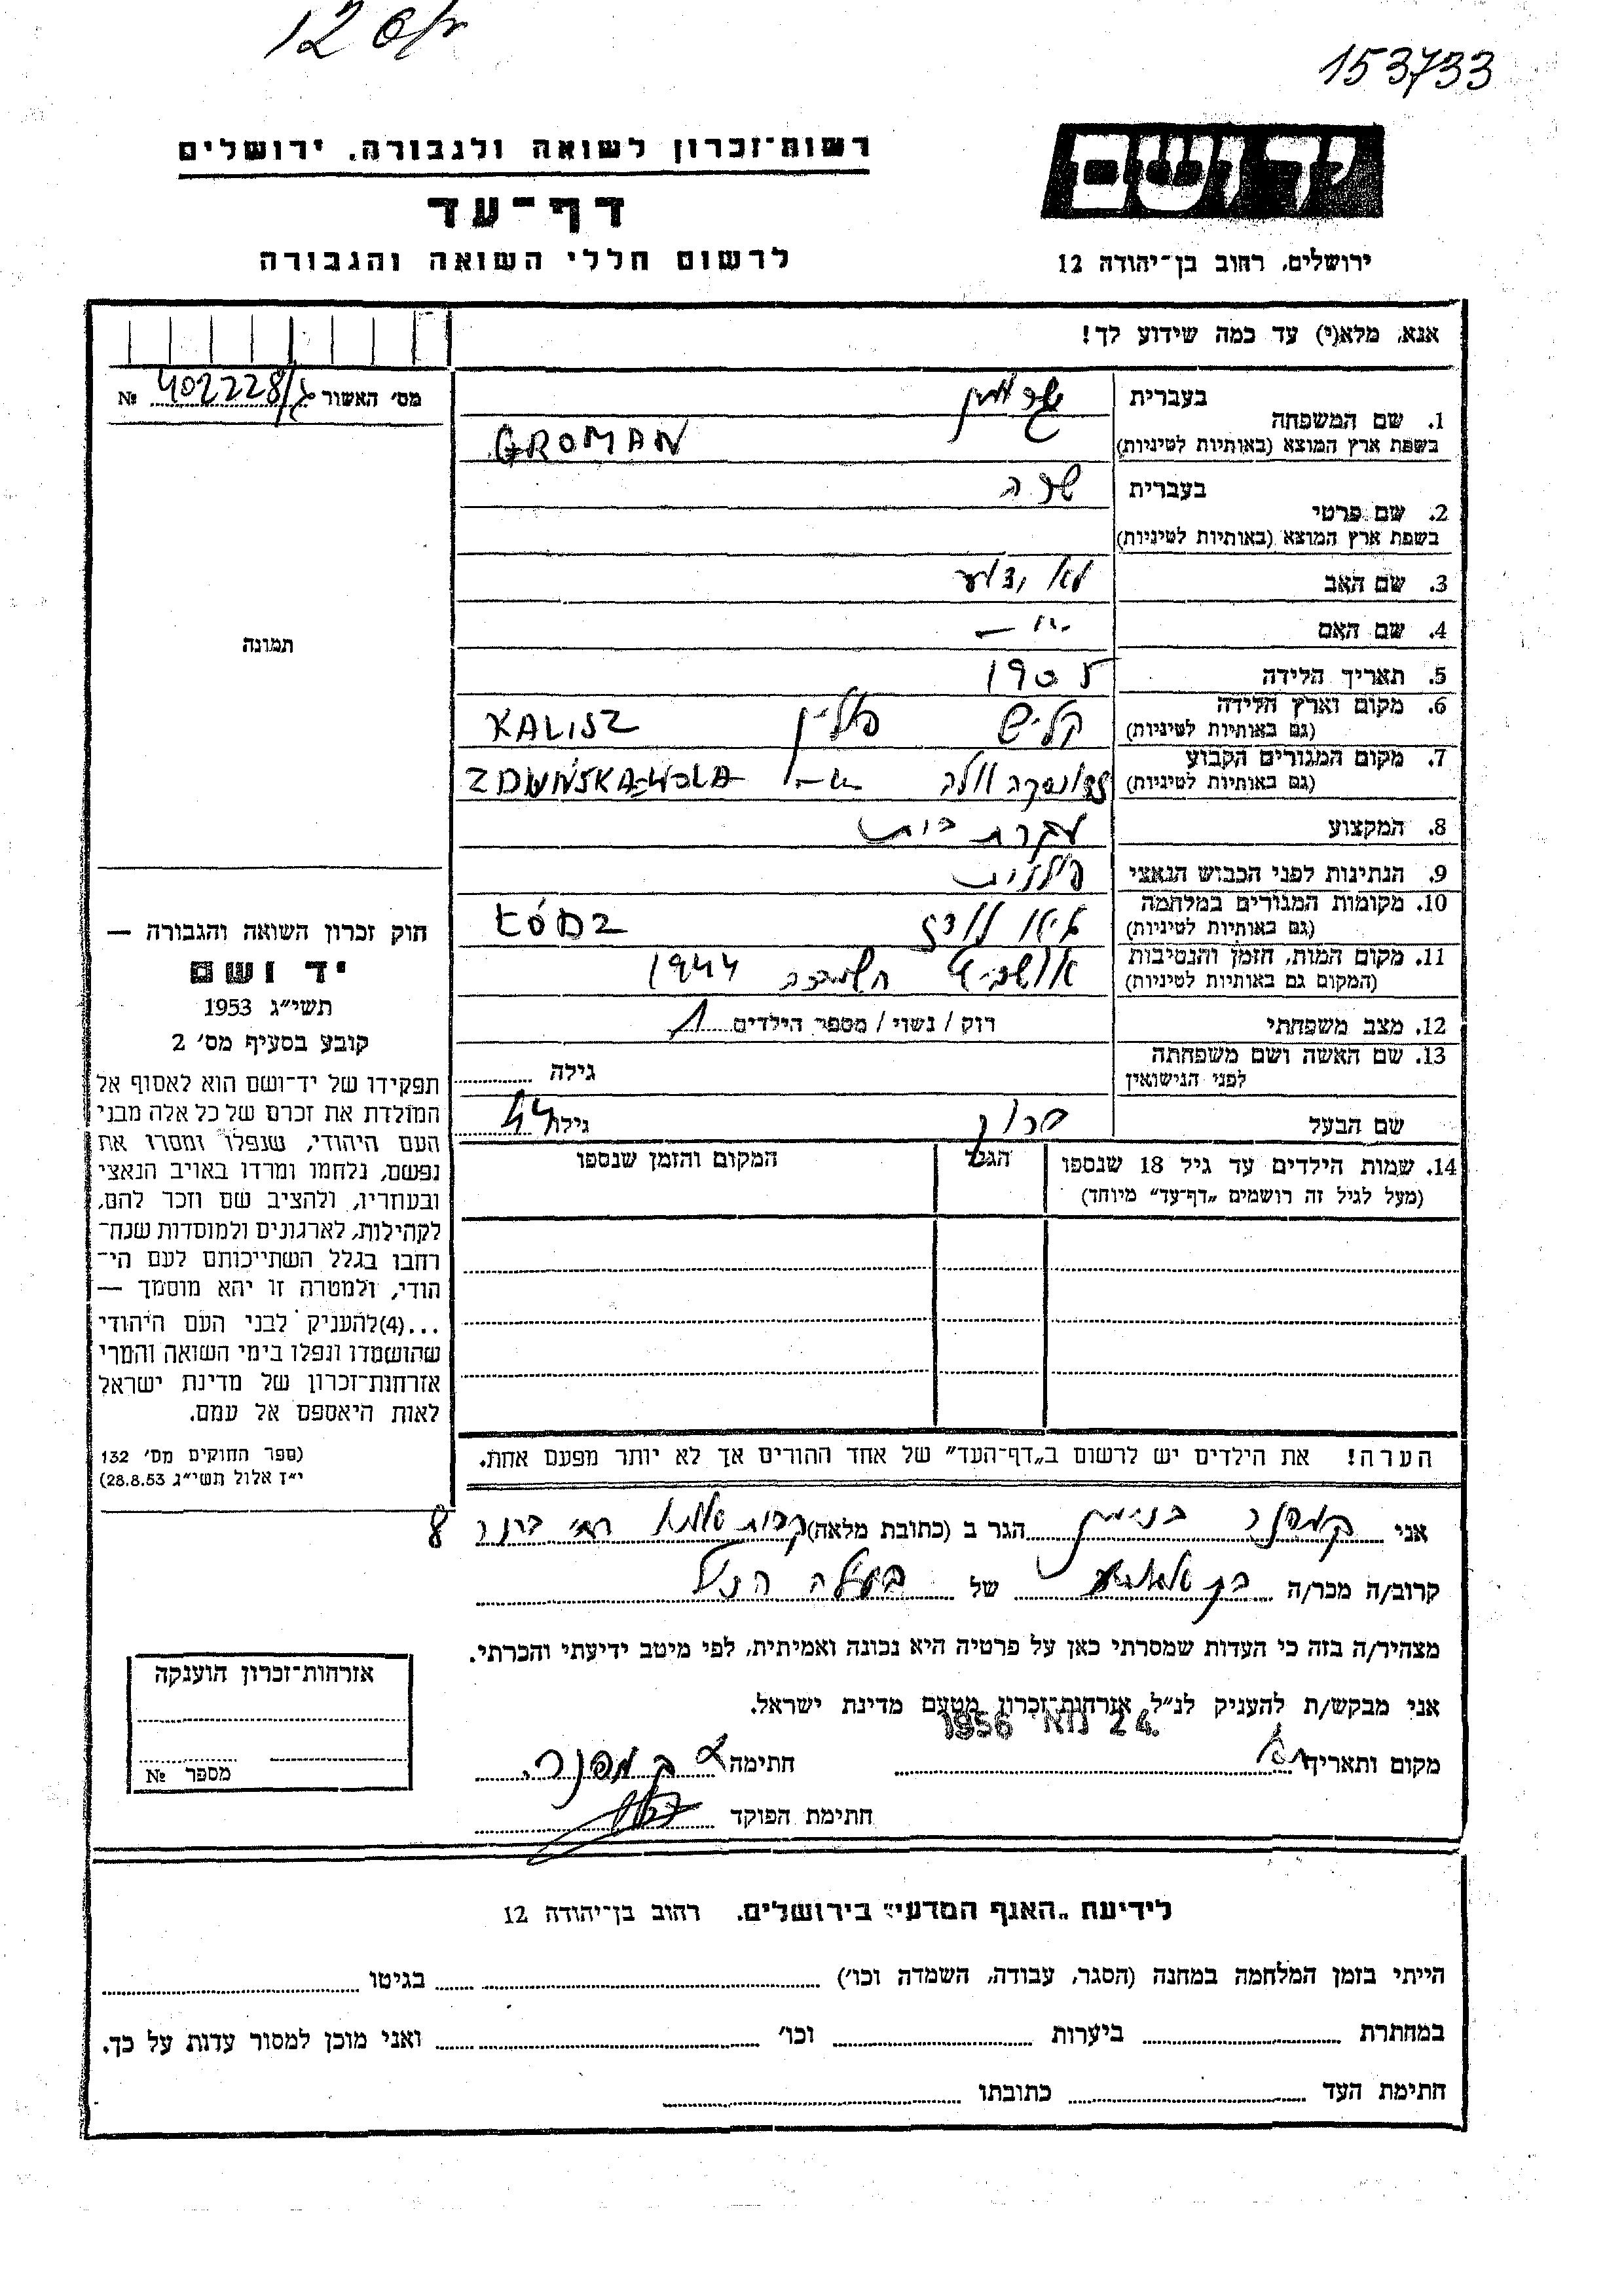 153733
רשות־זכרון לשואה ולגבורה. ירושלים
דף־עד
לרשום חללי השואה והגבורה
יד ושם
ירושלים, רחוב בן־יהודה 12
אנא, מלא(י) עד כמה שידוע לך!
מס׳ האשור 402228/ № 
1. שם המשפחה
בעברית
בשפת ארץ המוצא (באותיות לטיניות) GROMAN
2. שם פרטי
בעברית שרה
בשפת ארץ המוצא (באותיות לטיניות)
3. שם האב לא ידוע
4. שם האם -"-
5. תאריך הלידה 1905
6. מקום וארץ הלידה קליש פולין KALISZ
(גם באותיות לטיניות)
7. מקום המגורים הקבוע זדונסקה וולה -"- ZDUŃSKA-WOLA
(גם באותיות לטיניות)
8. המקצוע עקרת בית
9. הנתינות לפני הכבוש הנאצי פולנית
10. מקומות המגורים במלחמה גיטו לודז ŁÓDZ
(גם באותיות לטיניות)
11. מקום המות, הזמן והנסיבות אושביץ 1944
(המקום גם באותיות לטיניות)
12. מצב משפחתי רוק / נשוי / מספר הילדים 1
13. שם האשה ושם משפחתה גילה
לפני הנישואין
שם הבעל גילה 44
14. שמות הילדים עד גיל 18 שנספו
(מעל לגיל זה רושמים „דף־עד” מיוחד)
הגיל
המקום והזמן שנספו
הערה! את הילדים יש לרשום ב„דף־העד” של אחד ההורים אך לא יותר מפעם אחת.
תמונה
חוק זכרון השואה והגבורה —
יד ושם
תשי״ג 1953
קובע בסעיף מס׳ 2
תפקידו של יד־ושם הוא לאסוף אל
המולדת את זכרם של כל אלה מבני
העם היהודי, שנפלו ומסרו את
נפשם, נלחמו ומרדו באויב הנאצי
ובעוזריו, ולהציב שם וזכר להם,
לקהילות, לארגונים ולמוסדות שנח־
רחבו בגלל השתייכותם לעם הי־
הודי, ולמטרה זו יהא מוסמך —
...(4)להעניק לבני העם היהודי
שהושמדו ונפלו בימי השואה והמרי
אזרחות־זכרון של מדינת ישראל
לאות היאספם אל עמם.
(ספר החוקים מס׳ 132
י״ז אלול תשי״ג 28.8.53)
אני בנימין הגר ב (כתובת מלאה) 8
קרוב/ה מכר/ה של בעלה הנ״ל
מצהיר/ה בזה כי העדות שמסרתי כאן על פרטיה היא נכונה ואמיתית, לפי מיטב ידיעתי והכרתי.
אני מבקש/ת להעניק לנ״ל אזרחות־זכרון מטעם מדינת ישראל.
מקום ותאריך 24 מאי 1956 חתימה
חתימת הפוקד
אזרחות־זכרון הוענקה
מספר №
לידיעת „האגף המדעי” בירושלים. רחוב בן־יהודה 12
הייתי בזמן המלחמה במחנה (הסגר, עבודה, השמדה וכו׳) בגיטו
במחתרת ביערות וכו׳ ואני מוכן למסור עדות על כך.
חתימת העד כתובתו